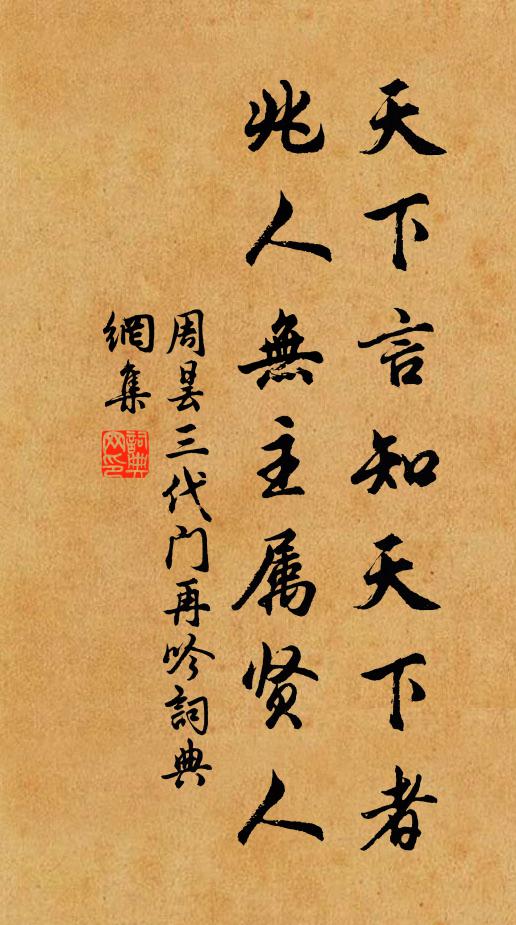 天下言知天下者
兆人無主属贤人
周昙三代门再吟詞典
網集
詞典
网印